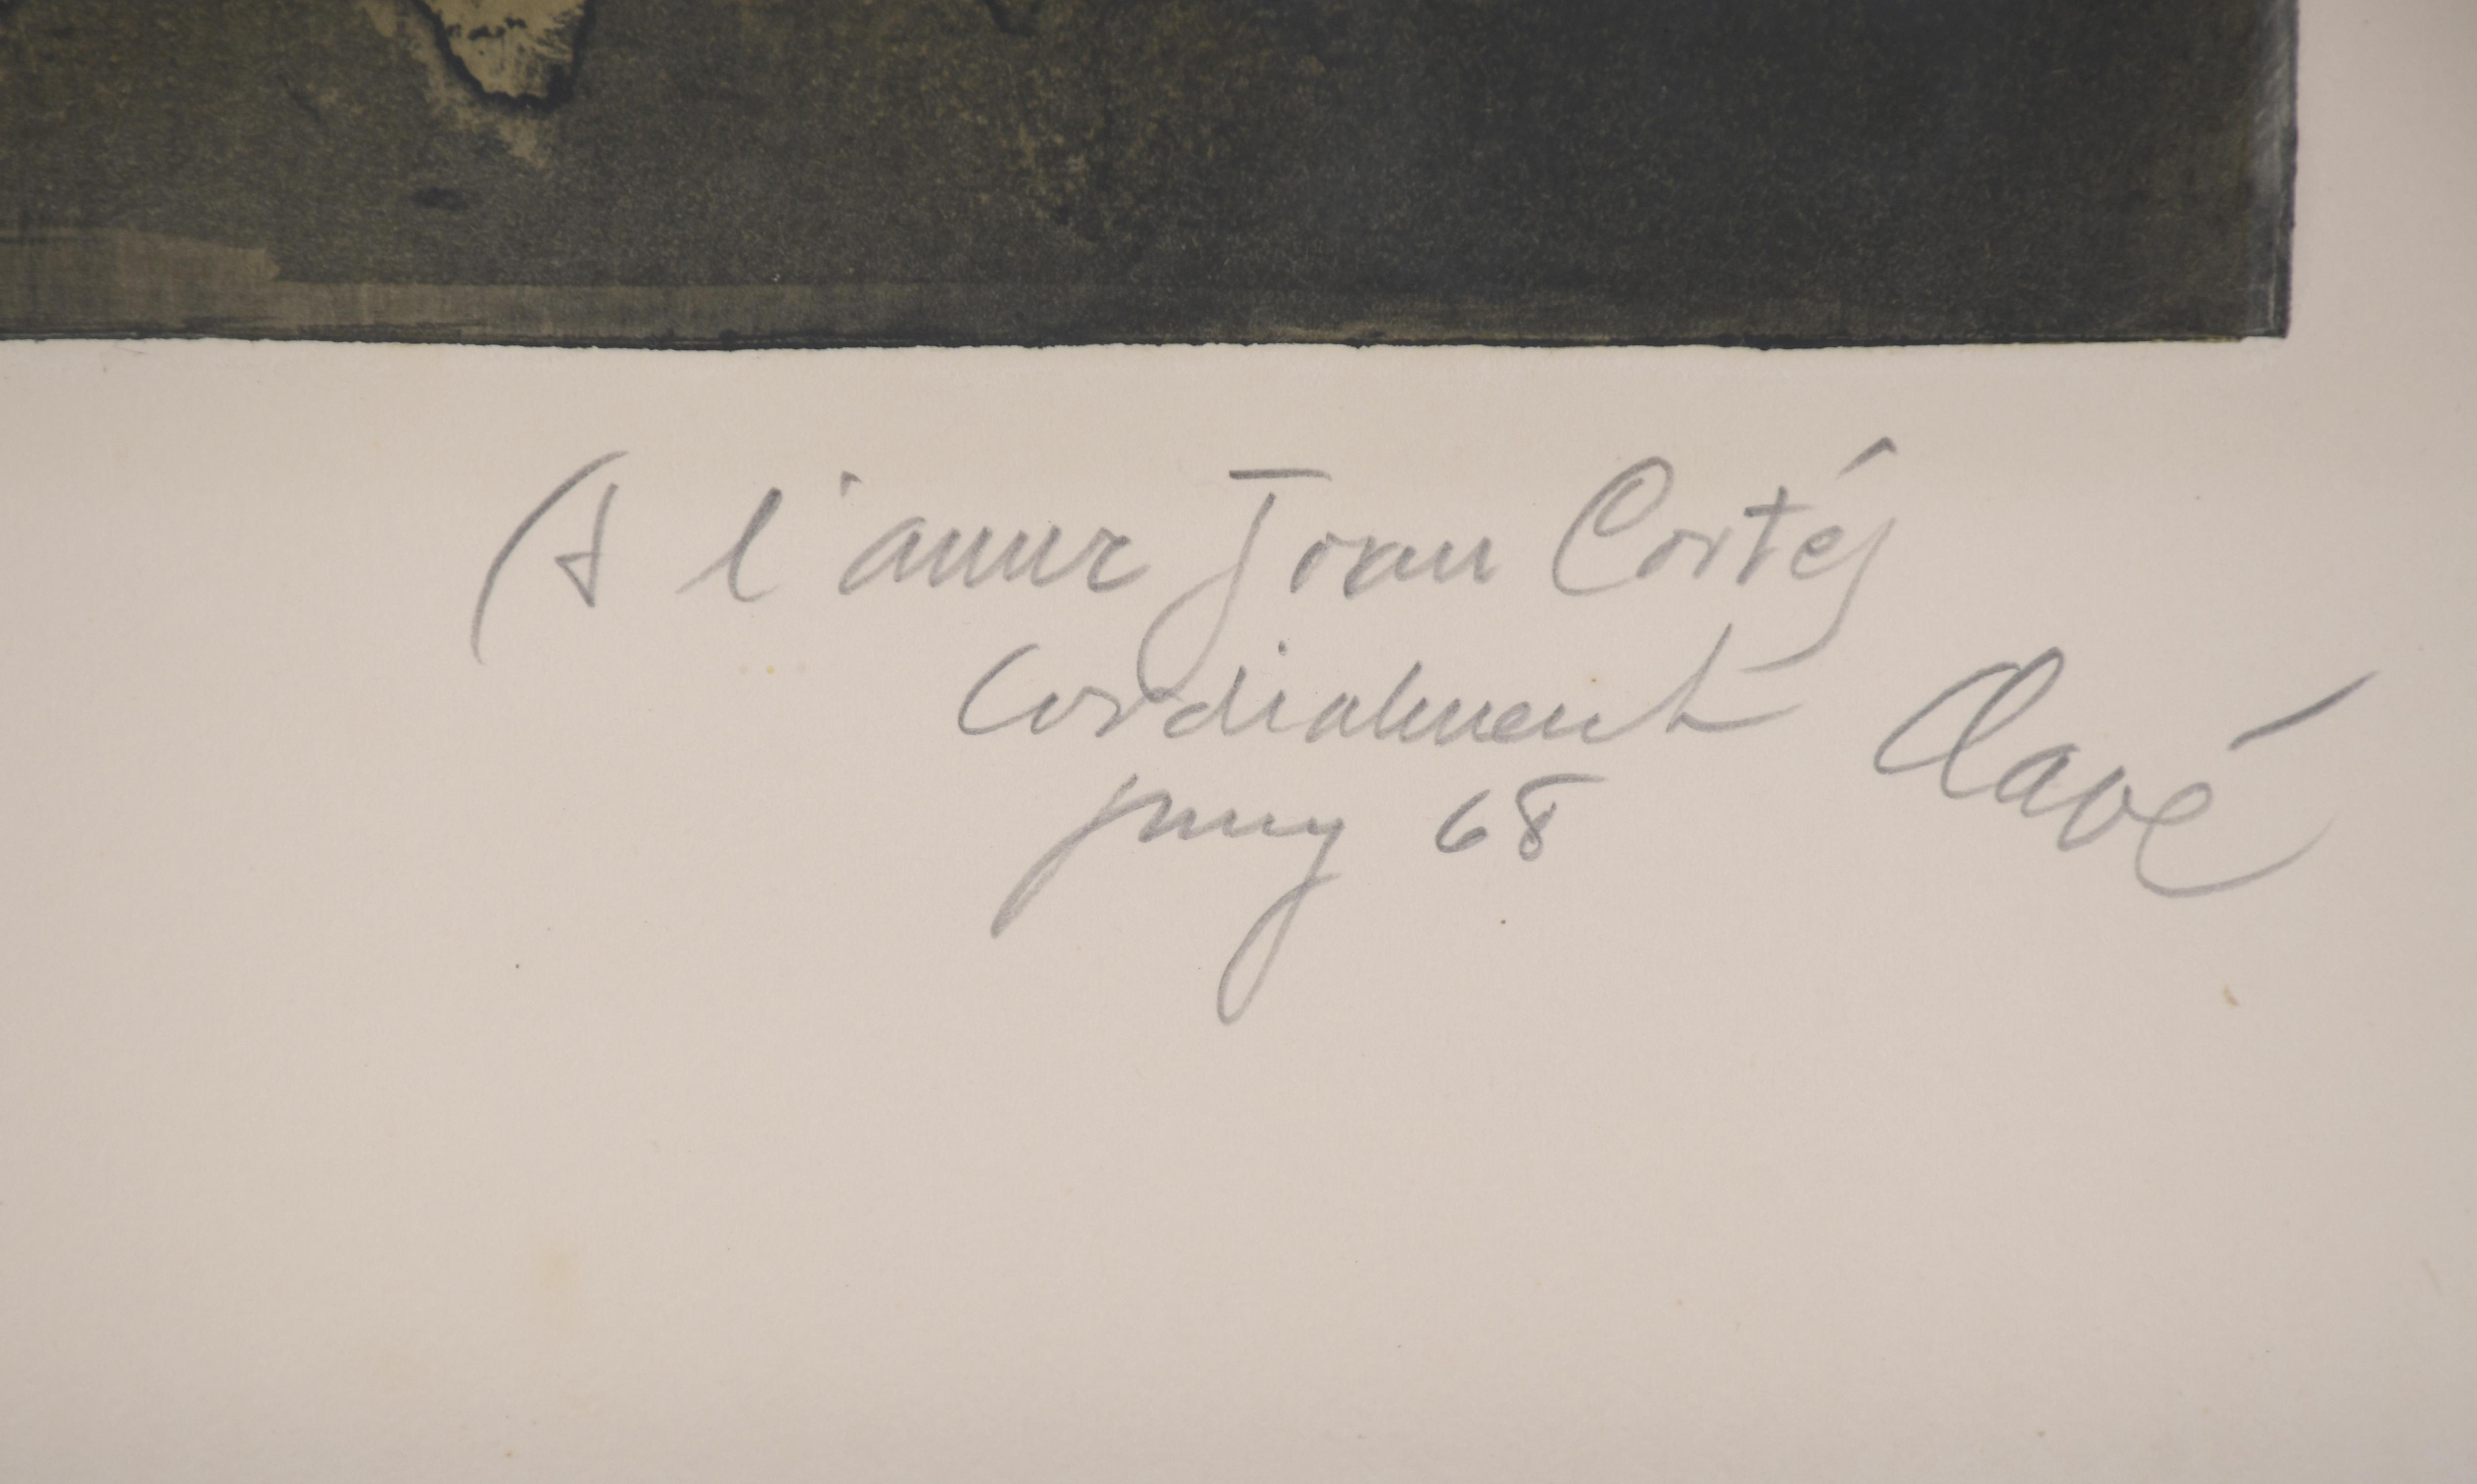 A l'amic Joan Cortés
Cordialment
juny 68
Clavé